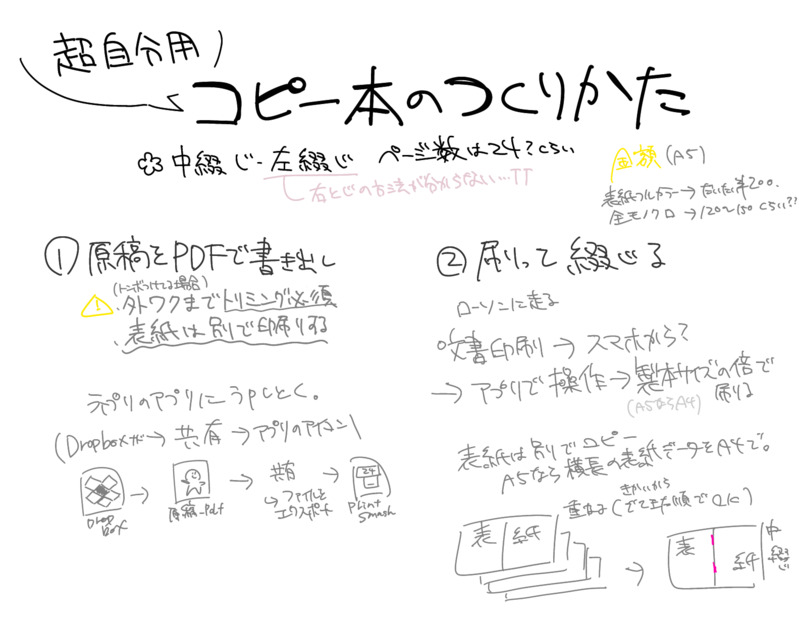 超自分用
コピー本のつくりかた
中綴じ・左綴じ ページ数は24?くらい
右とじの方法が分からない…TT
金額(A5)
表紙フルカラー→だいたい¥200.
全モノクロ→120〜150くらい??
① 原稿をPDFで書き出し
(トンボつけてる場合)
! ・外ワクまでトリミング必須
・表紙は別で印刷する
プリのアプリにうpしとく。
(Dropboxが→共有→アプリのアイコン)
Drop box → 原稿.pdf → 共有 → 24
↳ファイルを
エクスポート
Print Smash
② 刷って綴じる
ローソンに走る
文書印刷→スマホから?
→アプリで操作→製本サイズの倍で
刷る
(A5ならA4)
表紙は別でコピー
A5なら横長の表紙データをA4で。
重ねる(きかいから
でてきた順でOK)
表 紙 → 表 紙 中綴じ